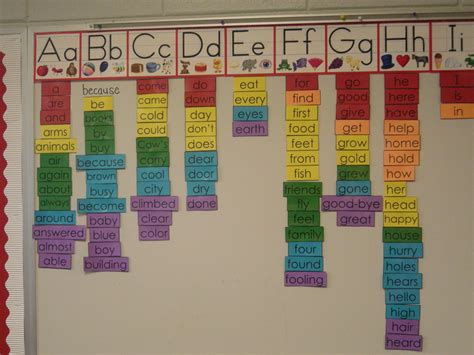 Aa Bb Cc Dd Ee Ff Gg Hh Ii
a
are
and
arms
animals
air
again
about
always
around
answered
almost
able
because
be
books
by
because
brown
busy
become
baby
blue
boy
building
come
came
cold
could
cow's
carry
cool
city
climbed
clear
color
do
down
day
don't
does
dear
door
dry
done
eat
every
eyes
earth
for
find
first
food
feet
from
fish
friends
fly
feel
family
four
found
fooling
go
good
give
get
girl
grow
gone
good-bye
great
he
have
help
home
hold
how
her
head
happy
house
hurry
holes
hears
hello
high
hair
heard
I
is
in